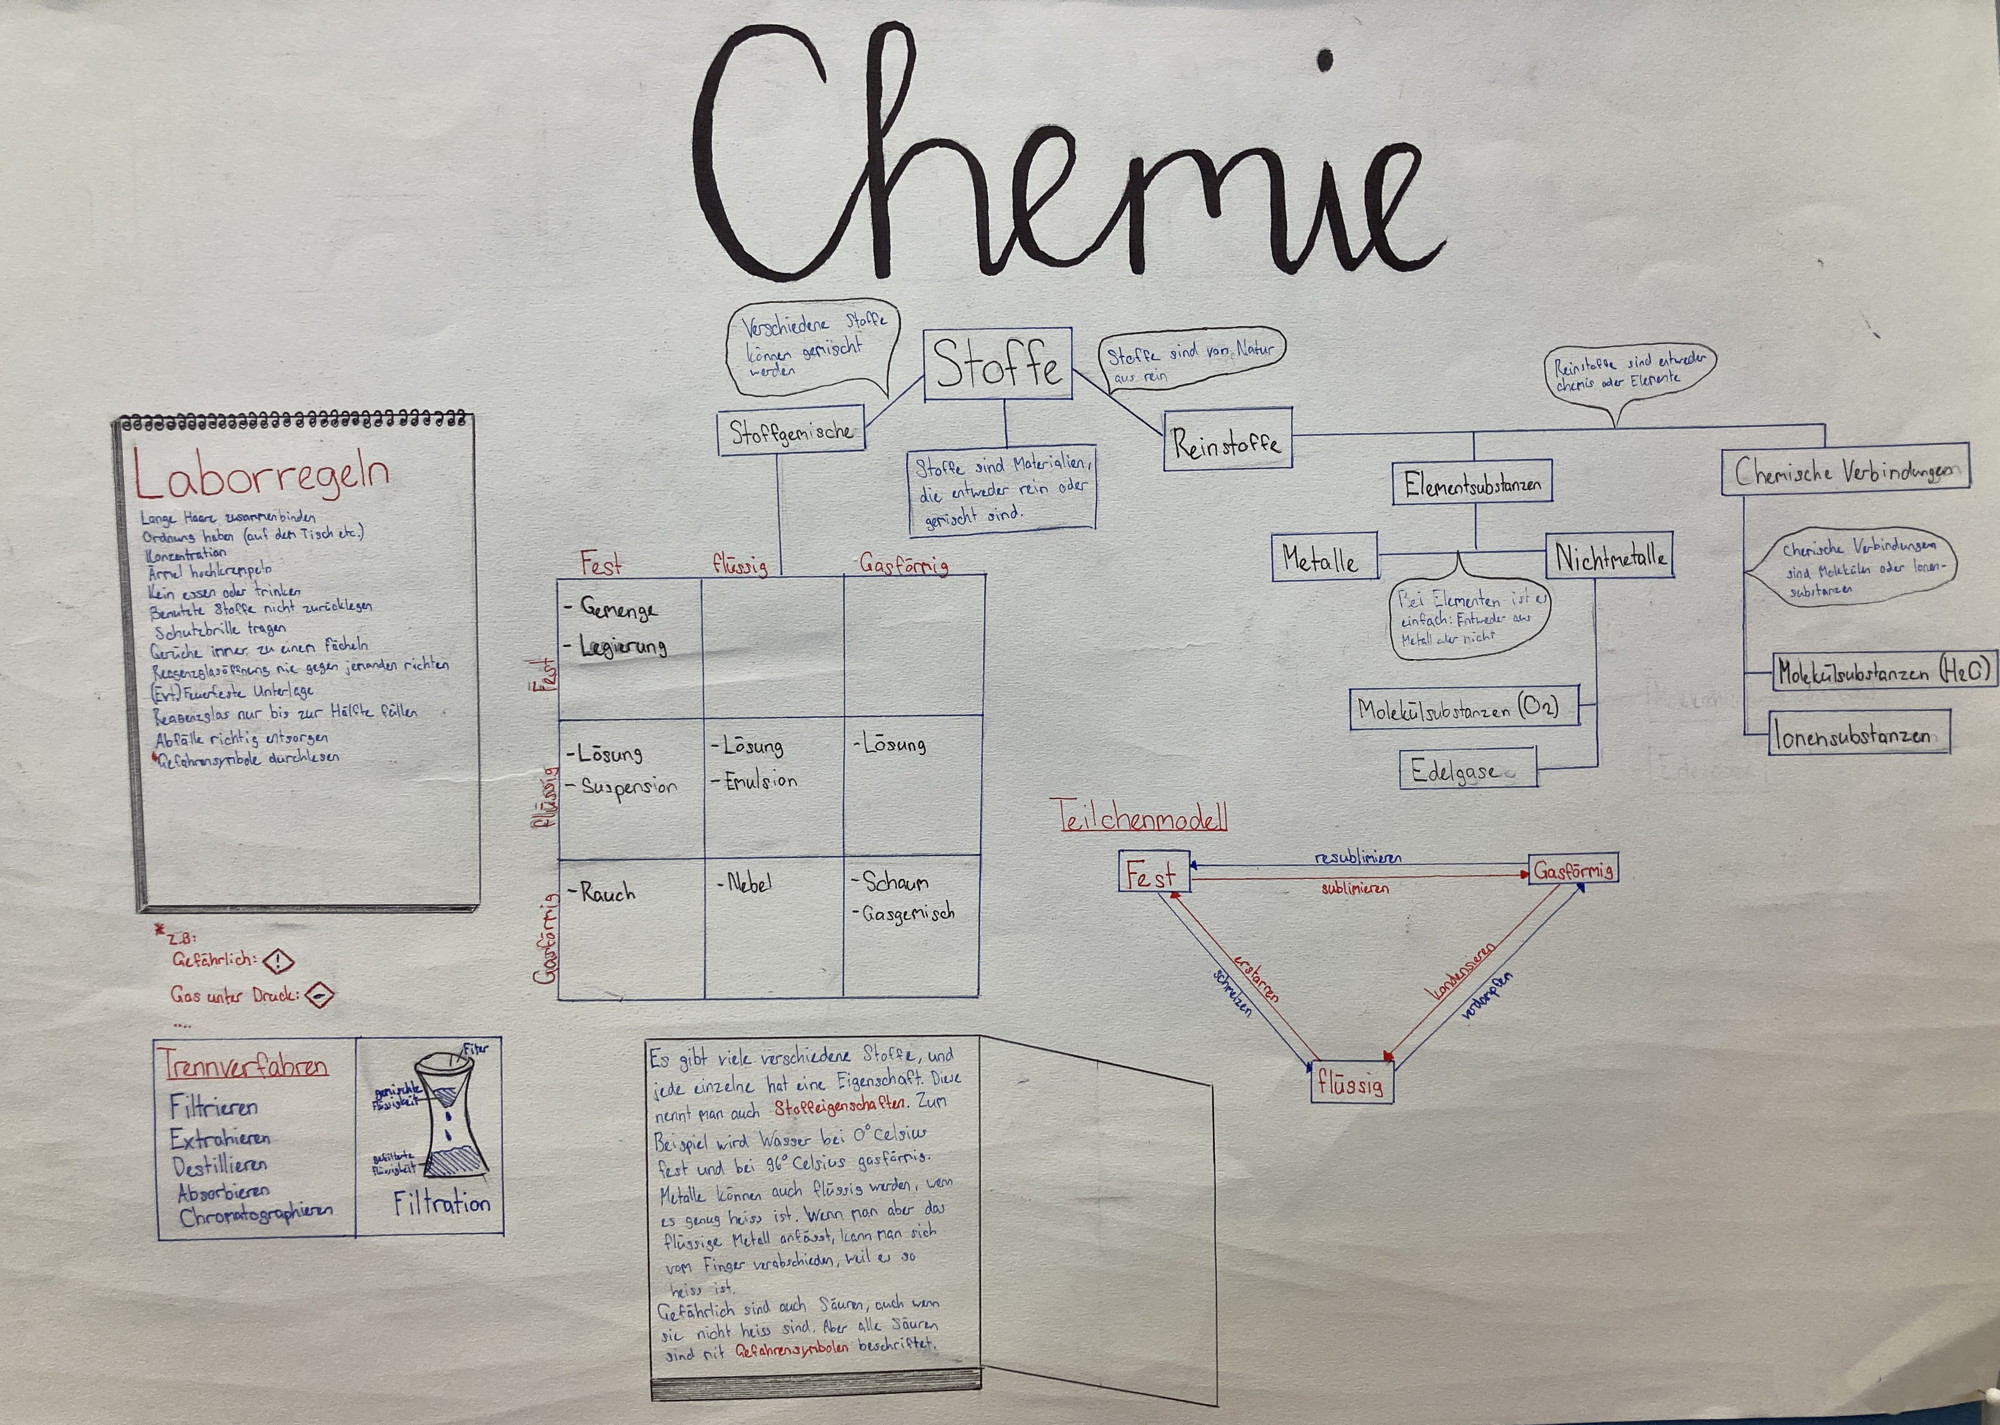 Chemie
Verschiedene Stoffe
können gemischt
werden
Stoffe
Stoffe sind von Natur
aus rein
Reinstoffe sind entweder
chemis oder Elemente
Stoffgemische
Stoffe sind Materialien,
die entweder rein oder
gemischt sind.
Reinstoffe
Elementsubstanzen
Chemische Verbindungen
Metalle
Nichtmetalle
Bei Elementen ist es
einfach: Entweder aus
Metall oder nicht
Chemische Verbindungen
sind Molekülen oder Ionen-
substanzen
Molekülsubstanzen (O2)
Edelgase
Molekülsubstanzen (H2O)
Ionensubstanzen
Laborregeln
Lange Haare zusammenbinden
Ordnung haben (auf dem Tisch etc.)
Konzentration
Ärmel hochkrempeln
Kein essen oder trinken
Benutzte Stoffe nicht zurücklegen
Schutzbrille tragen
Gerüche immer zu einem Fächeln
Reagenzglasöffnung nie gegen jemanden richten
(Evt) Feuerfeste Unterlage
Reagenzglas nur bis zur Hälfte füllen
Abfälle richtig entsorgen
*Gefahrensymbole durchlesen
* z.B:
Gefährlich: !
Gas unter Druck:
....
Fest flüssig Gasförmig
Fest
- Gemenge
- Legierung
flüssig
- Lösung
- Suspension
- Lösung
- Emulsion
- Lösung
Gasförmig
- Rauch
- Nebel
- Schaum
- Gasgemisch
Teilchenmodell
Fest
resublimieren
sublimieren
Gasförmig
erstarren
schmelzen
kondensieren
verdampfen
flüssig
Trennverfahren
Filtrieren
Extrahieren
Destillieren
Absorbieren
Chromatographieren
Filter
gemischte
Flüssigkeit
gefilterte
Flüssigkeit
Filtration
Es gibt viele verschiedene Stoffe, und
jede einzelne hat eine Eigenschaft. Diese
nennt man auch Stoffeigenschaften. Zum
Beispiel wird Wasser bei 0° Celsius
fest und bei 96° Celsius gasförmig.
Metalle können auch flüssig werden, wenn
es genug heiss ist. Wenn man aber das
flüssige Metall anfässt, kann man sich
vom Finger verabschieden, weil es so
heiss ist.
Gefährlich sind auch Säuren, auch wenn
sie nicht heiss sind. Aber alle Säuren
sind mit Gefahrensymbolen beschriftet.